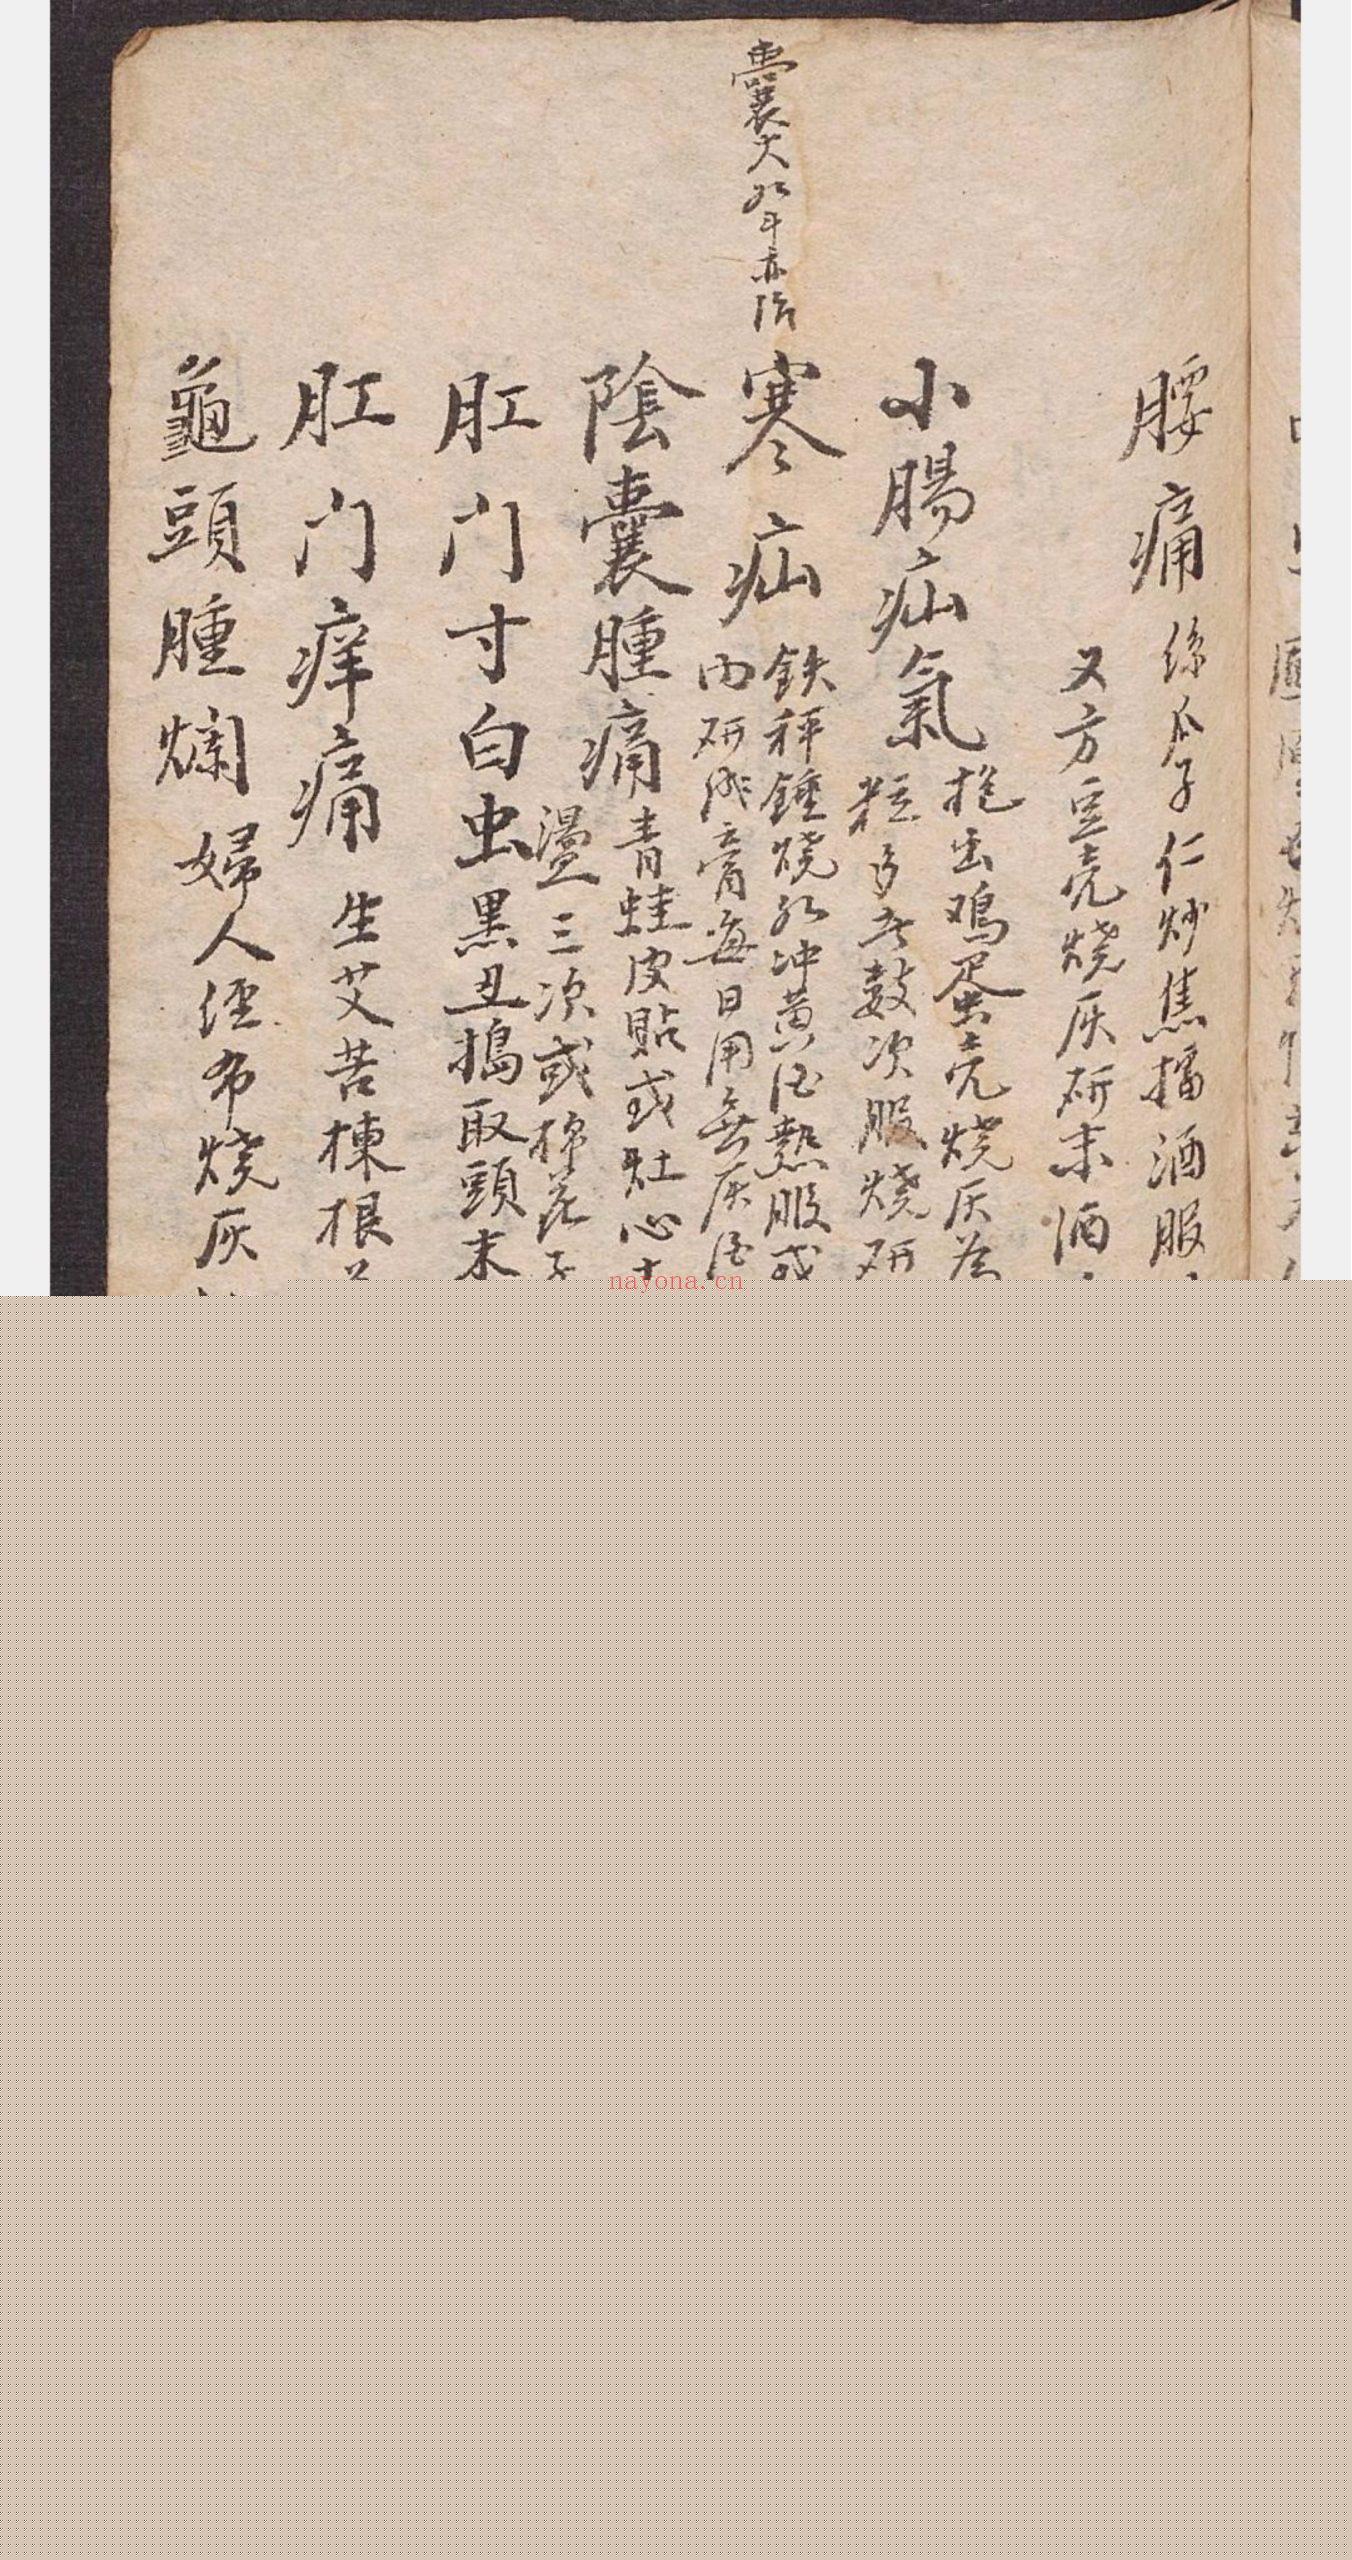 腰痛 絲瓜子仁炒焦擂酒服
又方豆壳燒灰研末酒
小腸疝氣 抱出鸡蛋壳燒灰為
數次服燒研
囊大如斗亦治
寒疝 鉄秤錘燒紅冲黄酒熱服或
肉研成膏每日用無灰酒
陰囊腫痛 青蛙皮貼或灶心
燙三次或棉花子
肛门寸白虫 黑丑搗取頭末
肛门痒痛 生艾苦楝根
龜頭腫爛 婦人經布燒灰
nayona.cn